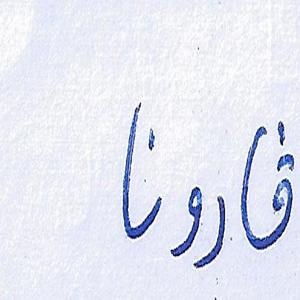 فارونا